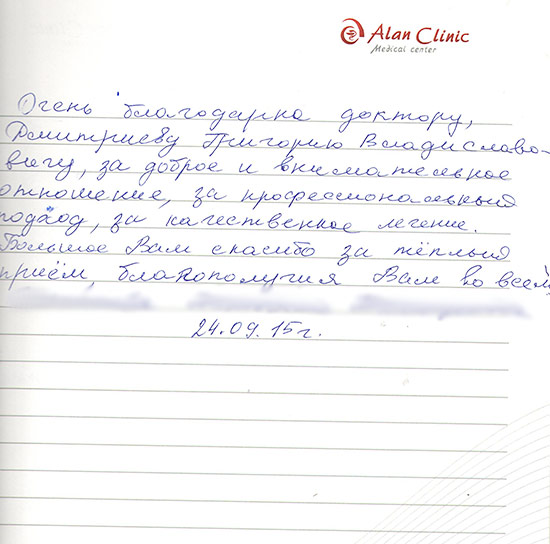 Alan Clinic
Medical center
Очень благодарна доктору,
Дмитриеву Григорию Владиславо-
вичу, за доброе и внимательное
отношение, за профессиональный
подход, за качественное лечение.
Большое Вам спасибо за тёплый
приём, благополучия Вам во всём
24.09.15г.